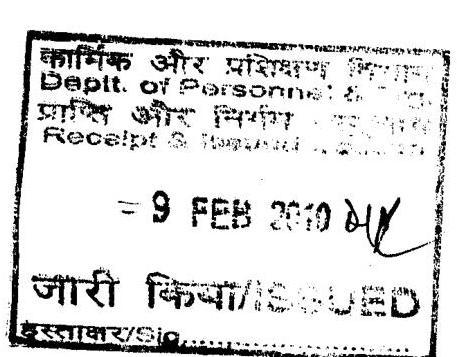 कार्मिक और प्रशिक्षण विभाग
Deptt. of Personnel &
प्राप्ति और निर्गम
Receipt & Issue
- 9 FEB 2010
जारी किया/ISSUED
हस्ताक्षर/Sig..................